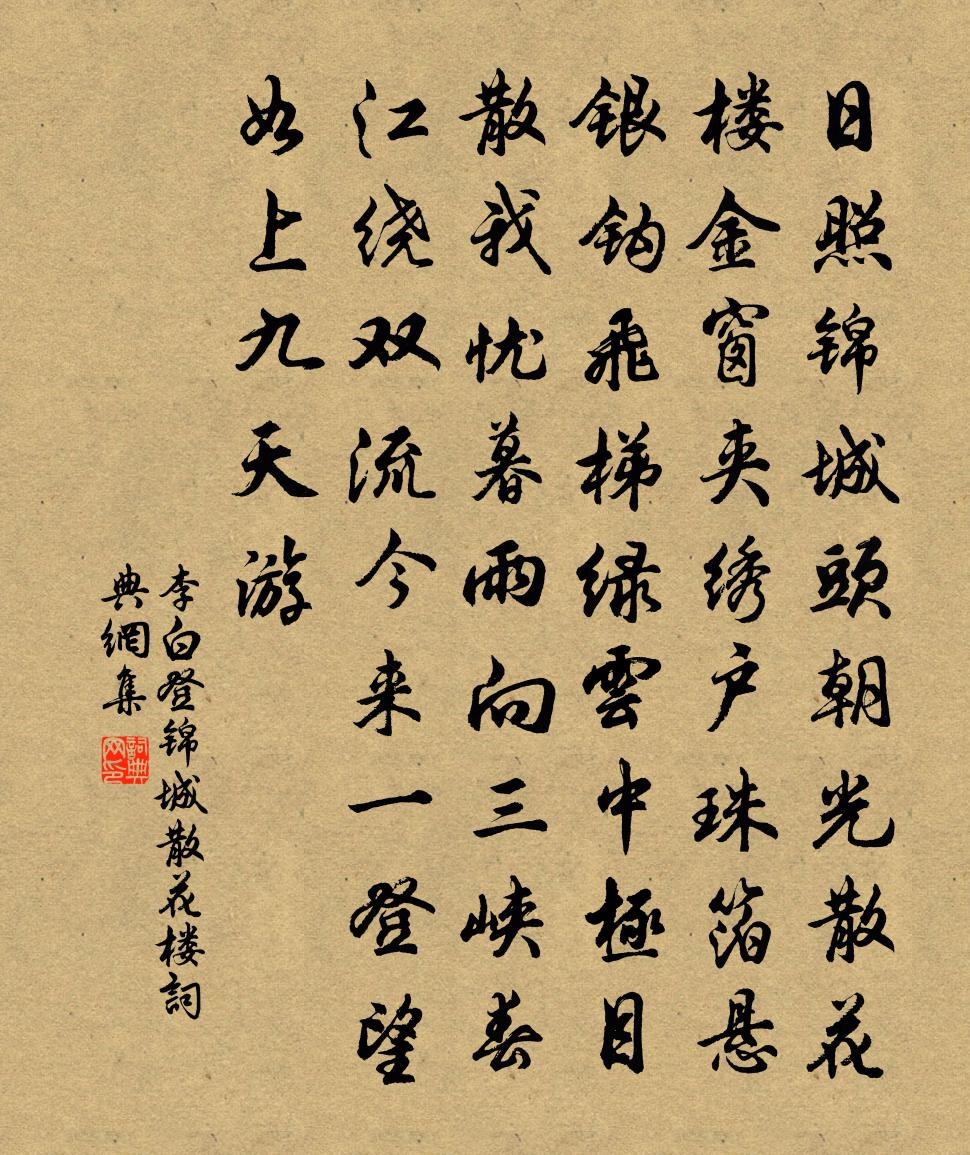 日照锦城頭朝光散花
楼金窗夹绣户珠箔悬
银钩飛梯绿雲中極目
散我忧暮雨向三峡春
江绕双流今来一登望
如上九天游
李白登锦城散花楼詞
典網集
詞典网印